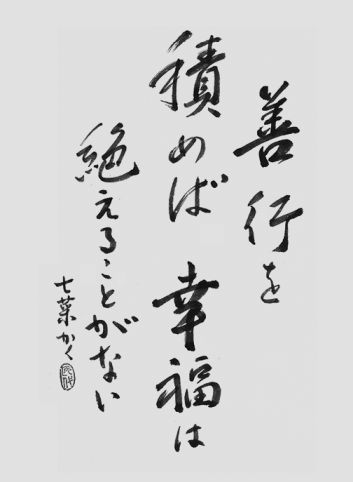 善行を
積めば 幸福は
絶えることがない
七葉かく